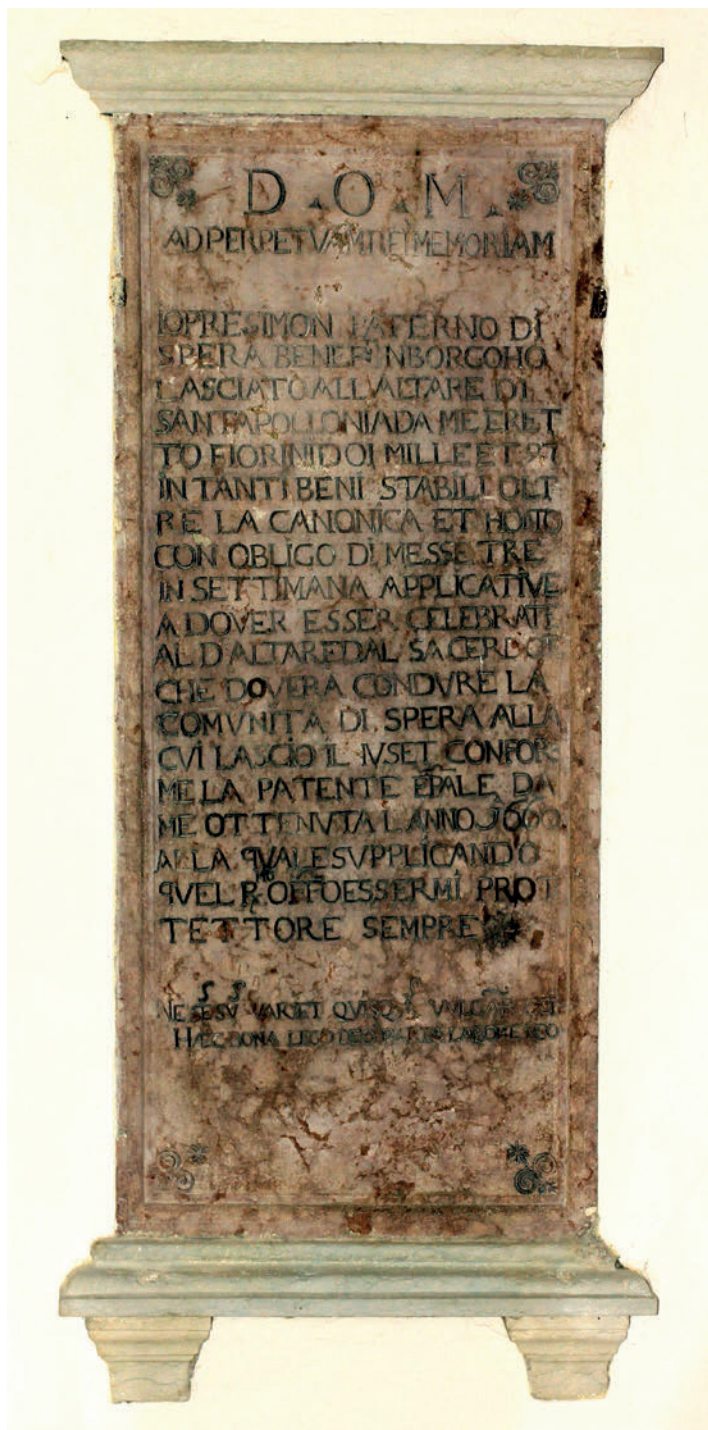 D . O . M .
AD PERPETVAM REI MEMORIAM
IO PRE SIMON PATERNO DI
SPERA BENEF IN BORGO HO
LASCIATO ALL ALTARE DI
SANTAPOLLONIA DA ME ERET
TO FIORINI DOI MILLE ET 97
IN TANTI BENI STABILI OLT
RE LA CANONICA ET HORTO
CON OBLIGO DI MESSE TRE
IN SETTIMANA APPLICATIVE
A DOVER ESSER CELEBRATE
AL D ALTARE DAL SACERDOTE
CHE DOVERA CONDVRE LA
COMVNITA DI SPERA ALLA
CVI LASCIO IL IVSET CONFOR
ME LA PATENTE EPALE DA
ME OTTENVTA L ANNO 1660
ALLA QVALE SVPPLICANDO
QVEL OFFO ESSERMI PROT
TETTORE SEMPRE
VARIET
HÆC BONA LEGO